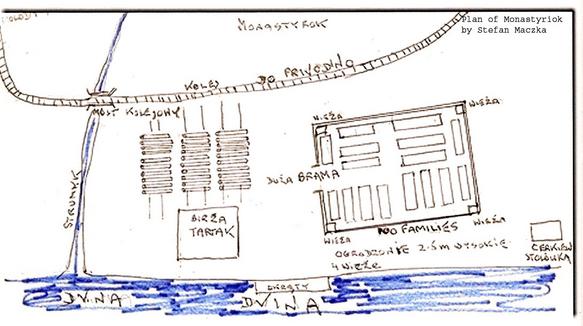 Plan of Monastyriok
by Stefan Maczka
MONASTYROK
KOLEJ DO PRIVODINO
MOST KOLEJOWY
WIEŻA
WIEŻA
DUŻA BRAMA
STRUMYK
BIRŻA
TARTAK
WIEŻA
WIEŻA
100 FAMILIES
OGRODZENIE 2.5m WYSOKIE
4 WIEŻE
CERKIEW
STOŁÓWKA
OKRĘTY
DVINA
DVINA